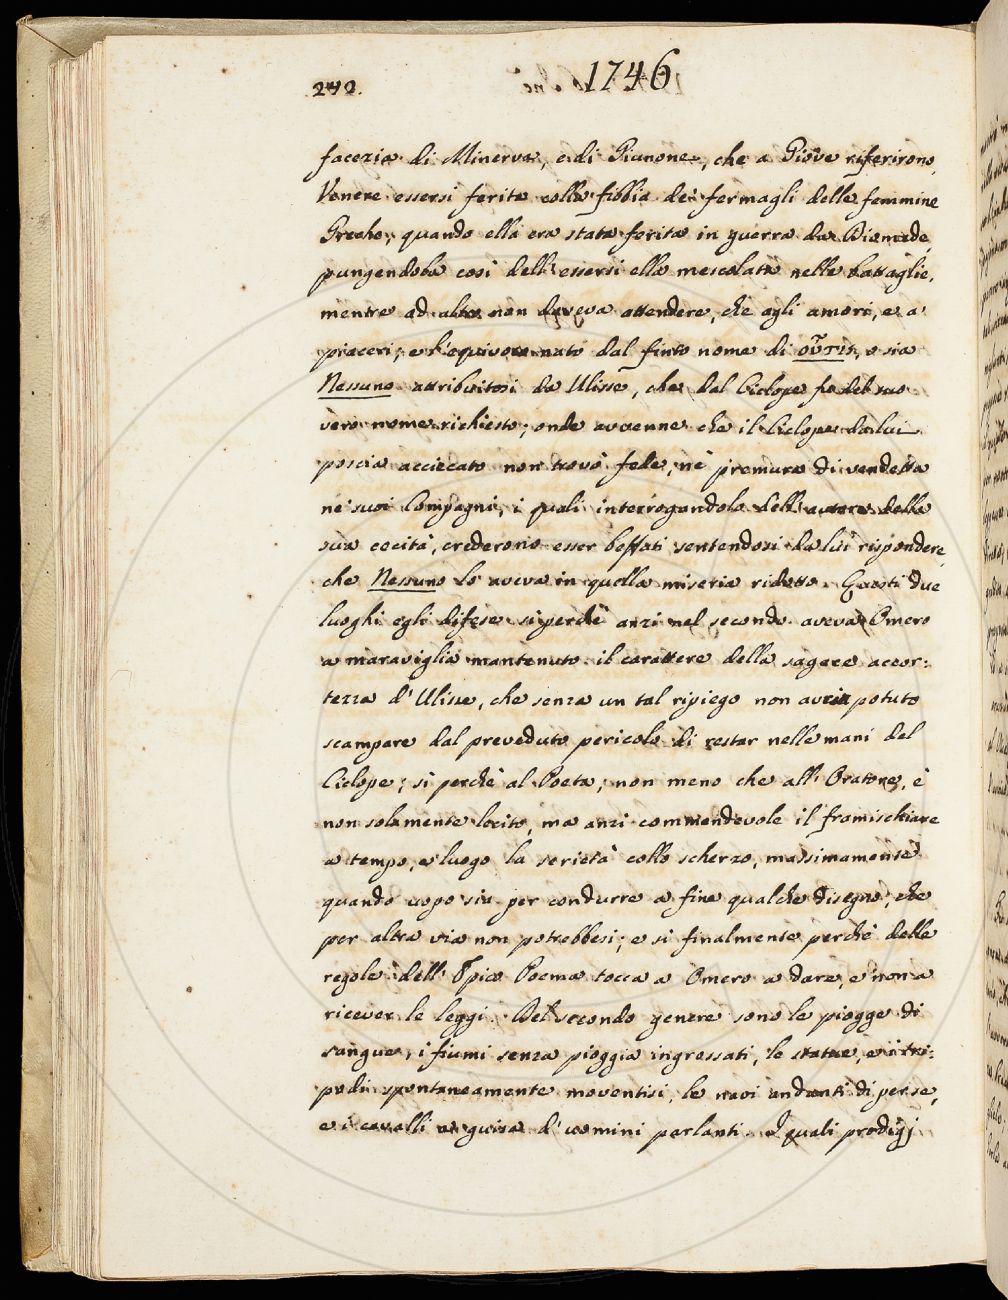 242.
1746
facezia di Minerva, e di Giunone, che a Giove riferirono,
Venere essersi ferita colla fibbia dei fermagli delle femmine
Greche, quando ella era stata ferita in guerra da Diomede,
pungendola così dell'essersi ella mescolata nelle battaglie,
mentre ad altro non doveva attendere, che agli amori, e a'
piaceri; e l'equivoco nato dal finto nome di οὖτις, o sia
Nessuno attribuitosi da Ulisse, che dal Ciclope fu del suo
vero nome richiesto; onde avvenne che il Ciclope da lui
poscia acciecato non trovò fede, nè premura di vendetta
ne' suoi Compagni, i quali interrogandolo dell'autore della
sua cecità, crederono esser beffati sentendosi da lui rispondere,
che Nessuno lo aveva in quella miseria ridotto. Questi due
luoghi egli difese sì perchè anzi nel secondo aveva Omero
a maraviglia mantenuto il carattere della sagace accor:
tezza d'Ulisse, che senza un tal ripiego non avria potuto
scampare dal preveduto pericolo di restar nelle mani del
Ciclope; sì perchè al Poeta, non meno che all'Oratore, è
non solamente lecito, ma anzi commendevole il framischiare
a tempo, e luogo la serietà collo scherzo, massimamente
quando uopo sia per condurre a fine qualche disegno, che
per altra via non potrebbesi; e sì finalmente perchè delle
regole dell'Epico Poema tocca a Omero a dare, e non a
ricever le leggi. Del secondo genere sono le piogge di
sangue, i fiumi senza pioggia ingrossati, le statue, e i tri:
podi spontaneamente moventisi, le navi andanti di per se,
e i cavalli a guisa d'uomini parlanti. I quali prodigj